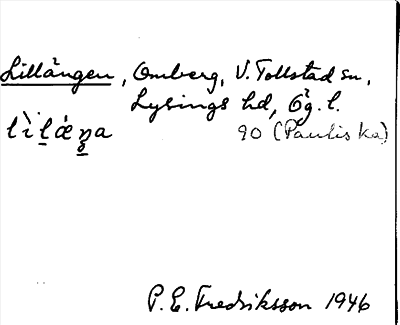 Lillängen, Omberg, V. Tollstad sn,
Lysings hd, Ög. l.
90 (Pauliska)
P. E. Fredriksson 1946